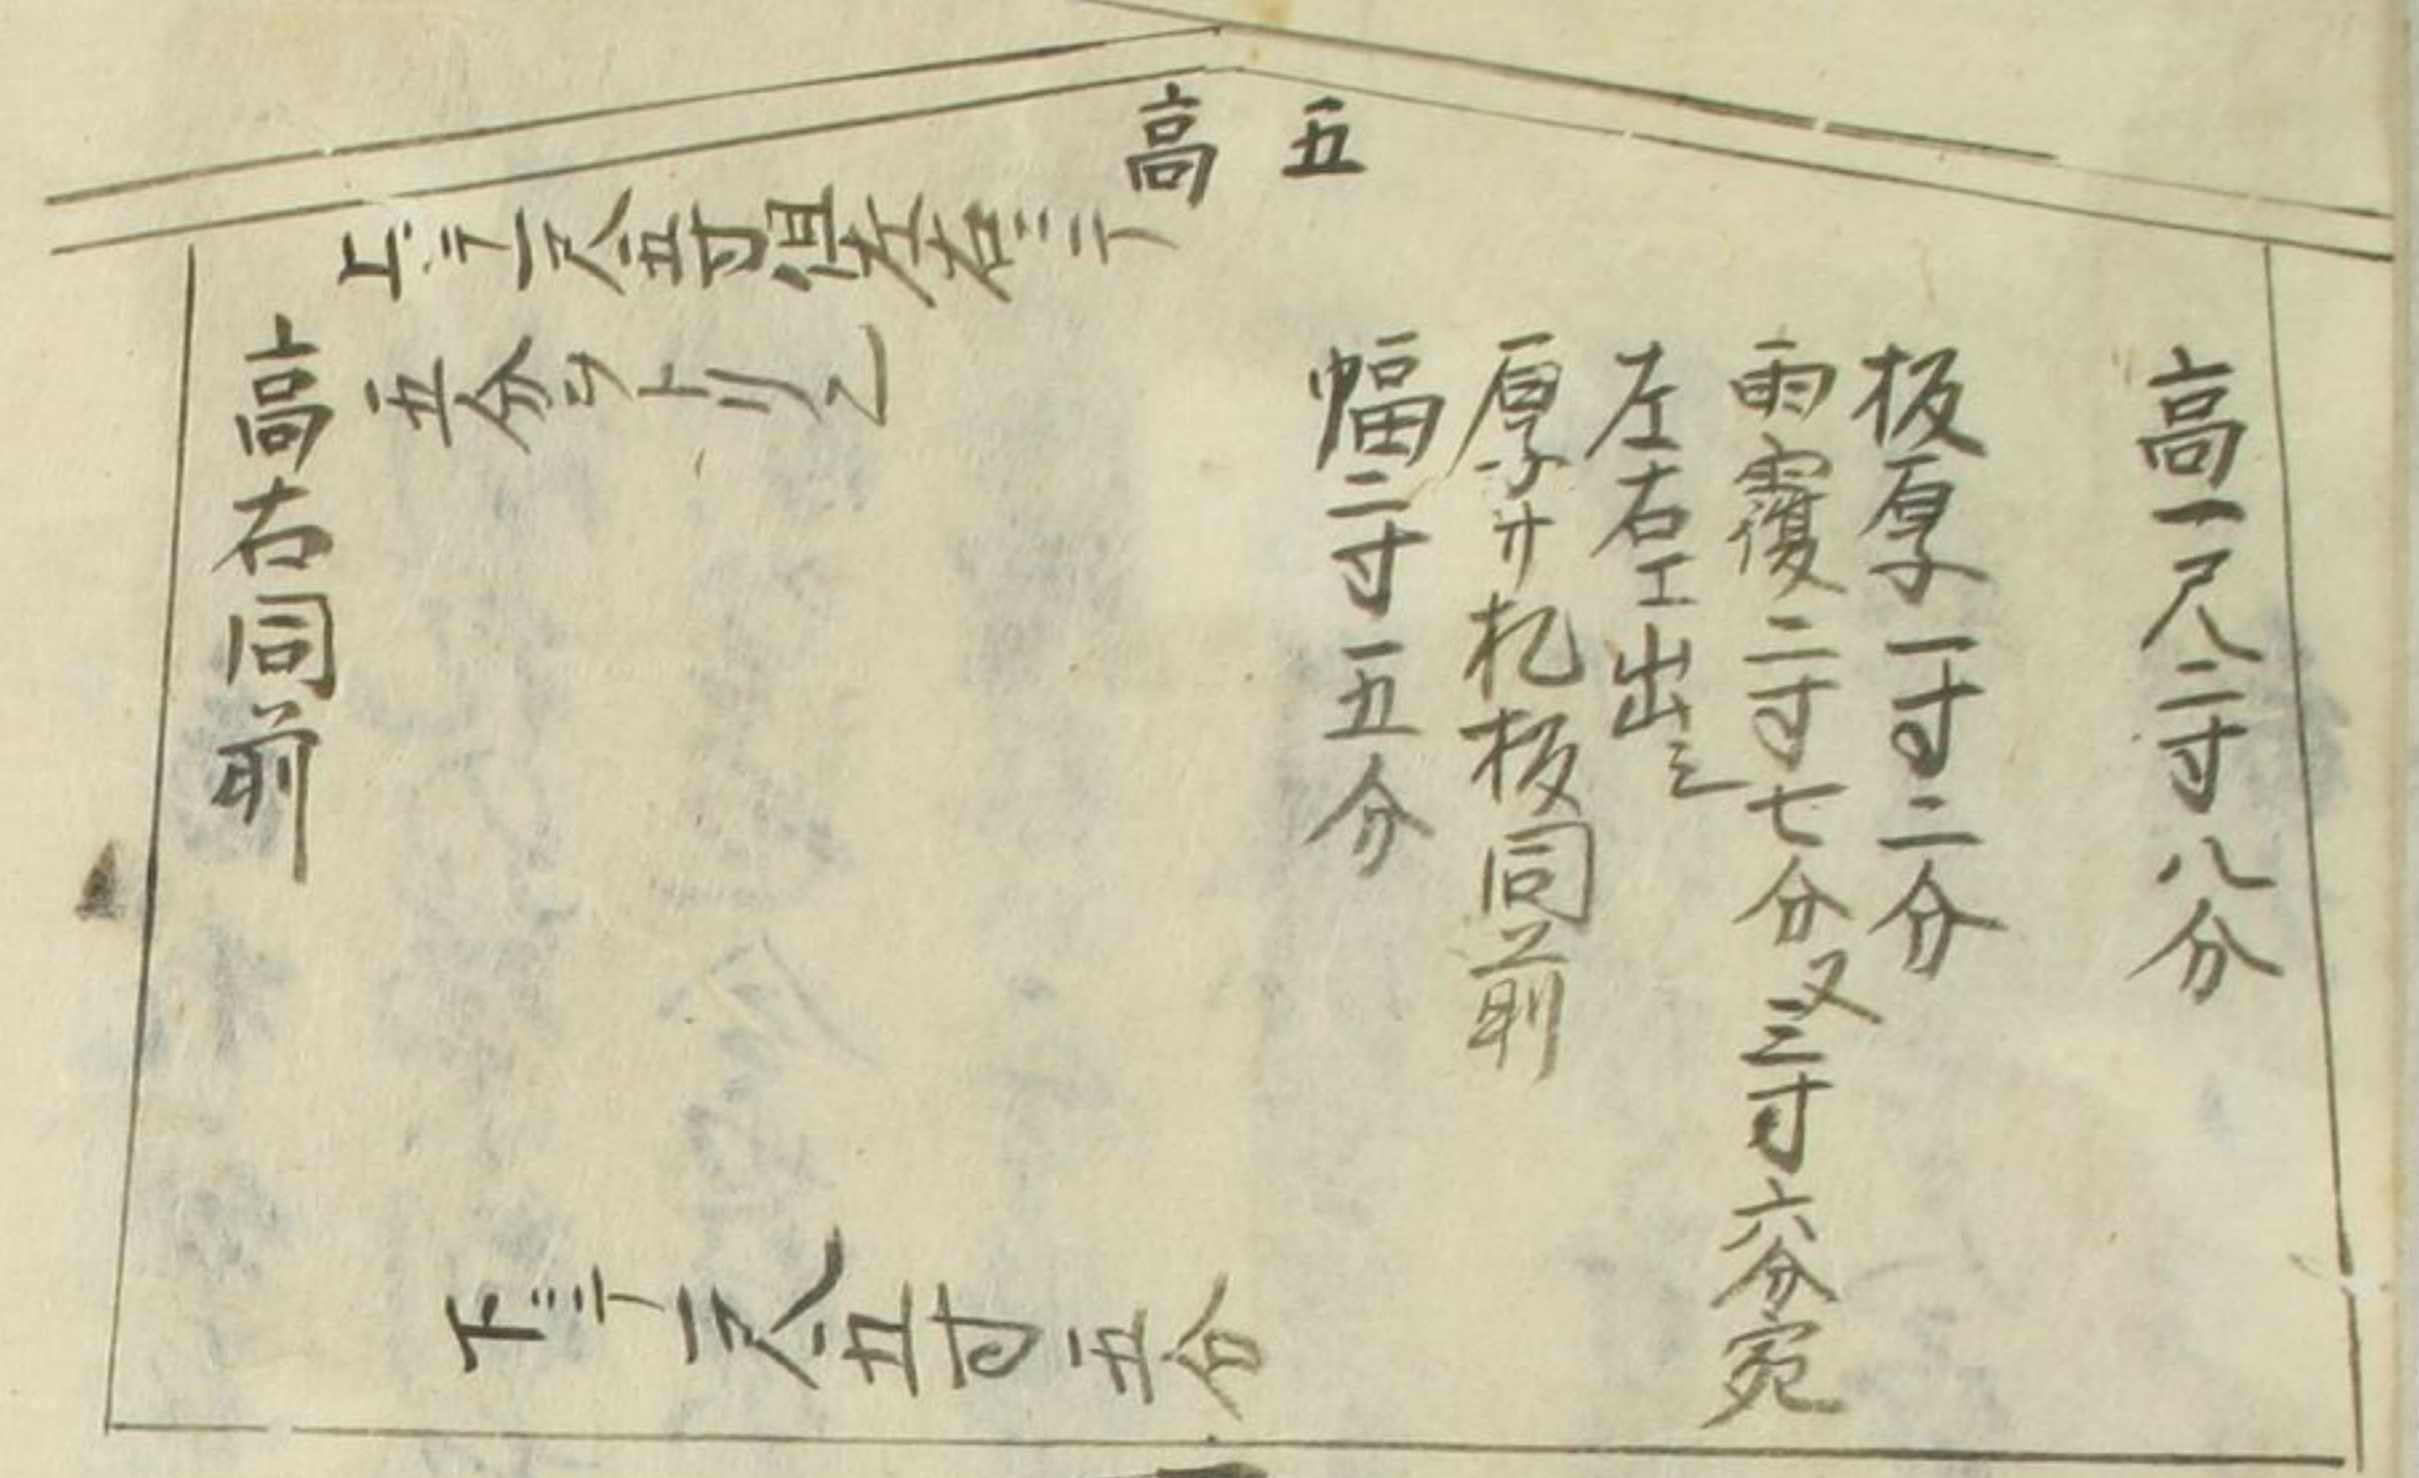 五
高
高一尺二寸八分
板厚一寸二分
雨覆二寸七分又三寸六分宛
左右エ出ル
厚サ札板同前
幅二寸一五分
上ニテ一尺五寸但左右ニテ
五分ツトリ
下ニテ一尺五寸五分
高右同前